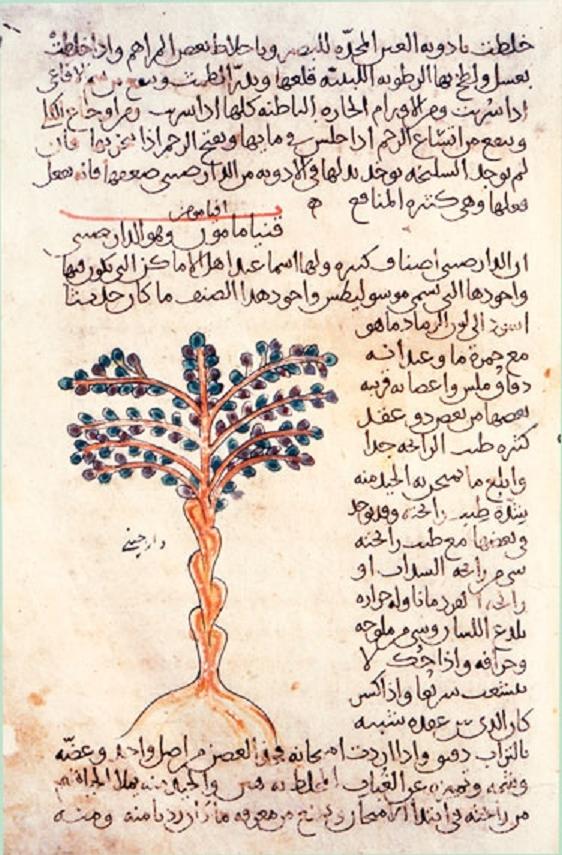 خلطت بادويه العين المحدّه للبصر وباخلاط بعض المراهم واذا خلطت
بعسل ولطخ بها الرطوبه اللبنيّه قلعها ويدرّ الطمث وينفع من سم الافاعي
اذا شربت ومن الاورام الحاره الباطنه كلها اذا شربت ومن اوجاع الكلا
وينفع من اتساع الرحم اذا جلس في مايها ويفتح الرحم اذا تبخر بها فان
لم توجد السليخه يوخذ بدلها في الادويه من الدارصيني ضعفها فانه يفعل
فعلها وهي كثيره المنافع
قنياماموٯن وهو الدارصيني
ان الدارصيني اصناف كثيره ولها اسما عند اهل الاماكن التي تكون فيها
واجودها التي تسمى موسوليطس واجود هذا الصنف ما كان حديثا
اسود الى لون الرماد ما هو
مع حمرة ما وعيدانه
دقاق ملس واغصانه قريبه
بعضها من بعض ذو عقد
كثيره طيب الرائحه جدا
وابلغ ما نمتحن به الجيد منه
بشدّة طيب رائحته وقد يوجد
في بعضها مع طيب رائحته
شي من رائحه السذاب او
رائحه القردمانا وله حراره
يلدع اللسان وشي من ملوحه
وحرافه واذا حك لا
يتشعب سريعا واذا كسر
كان الذي بين عقده شبيه
دارچيني
بالتراب دقيق واذا اردت امتحانه فخذ الغصن من اصل واحد
وتميزه عن الفتات المختلط به هين والجيد منه يملا الخياشيم
من رائحته في ابتدا الامتحان ويمنع من معرفه ما كان رديا منه ومنه